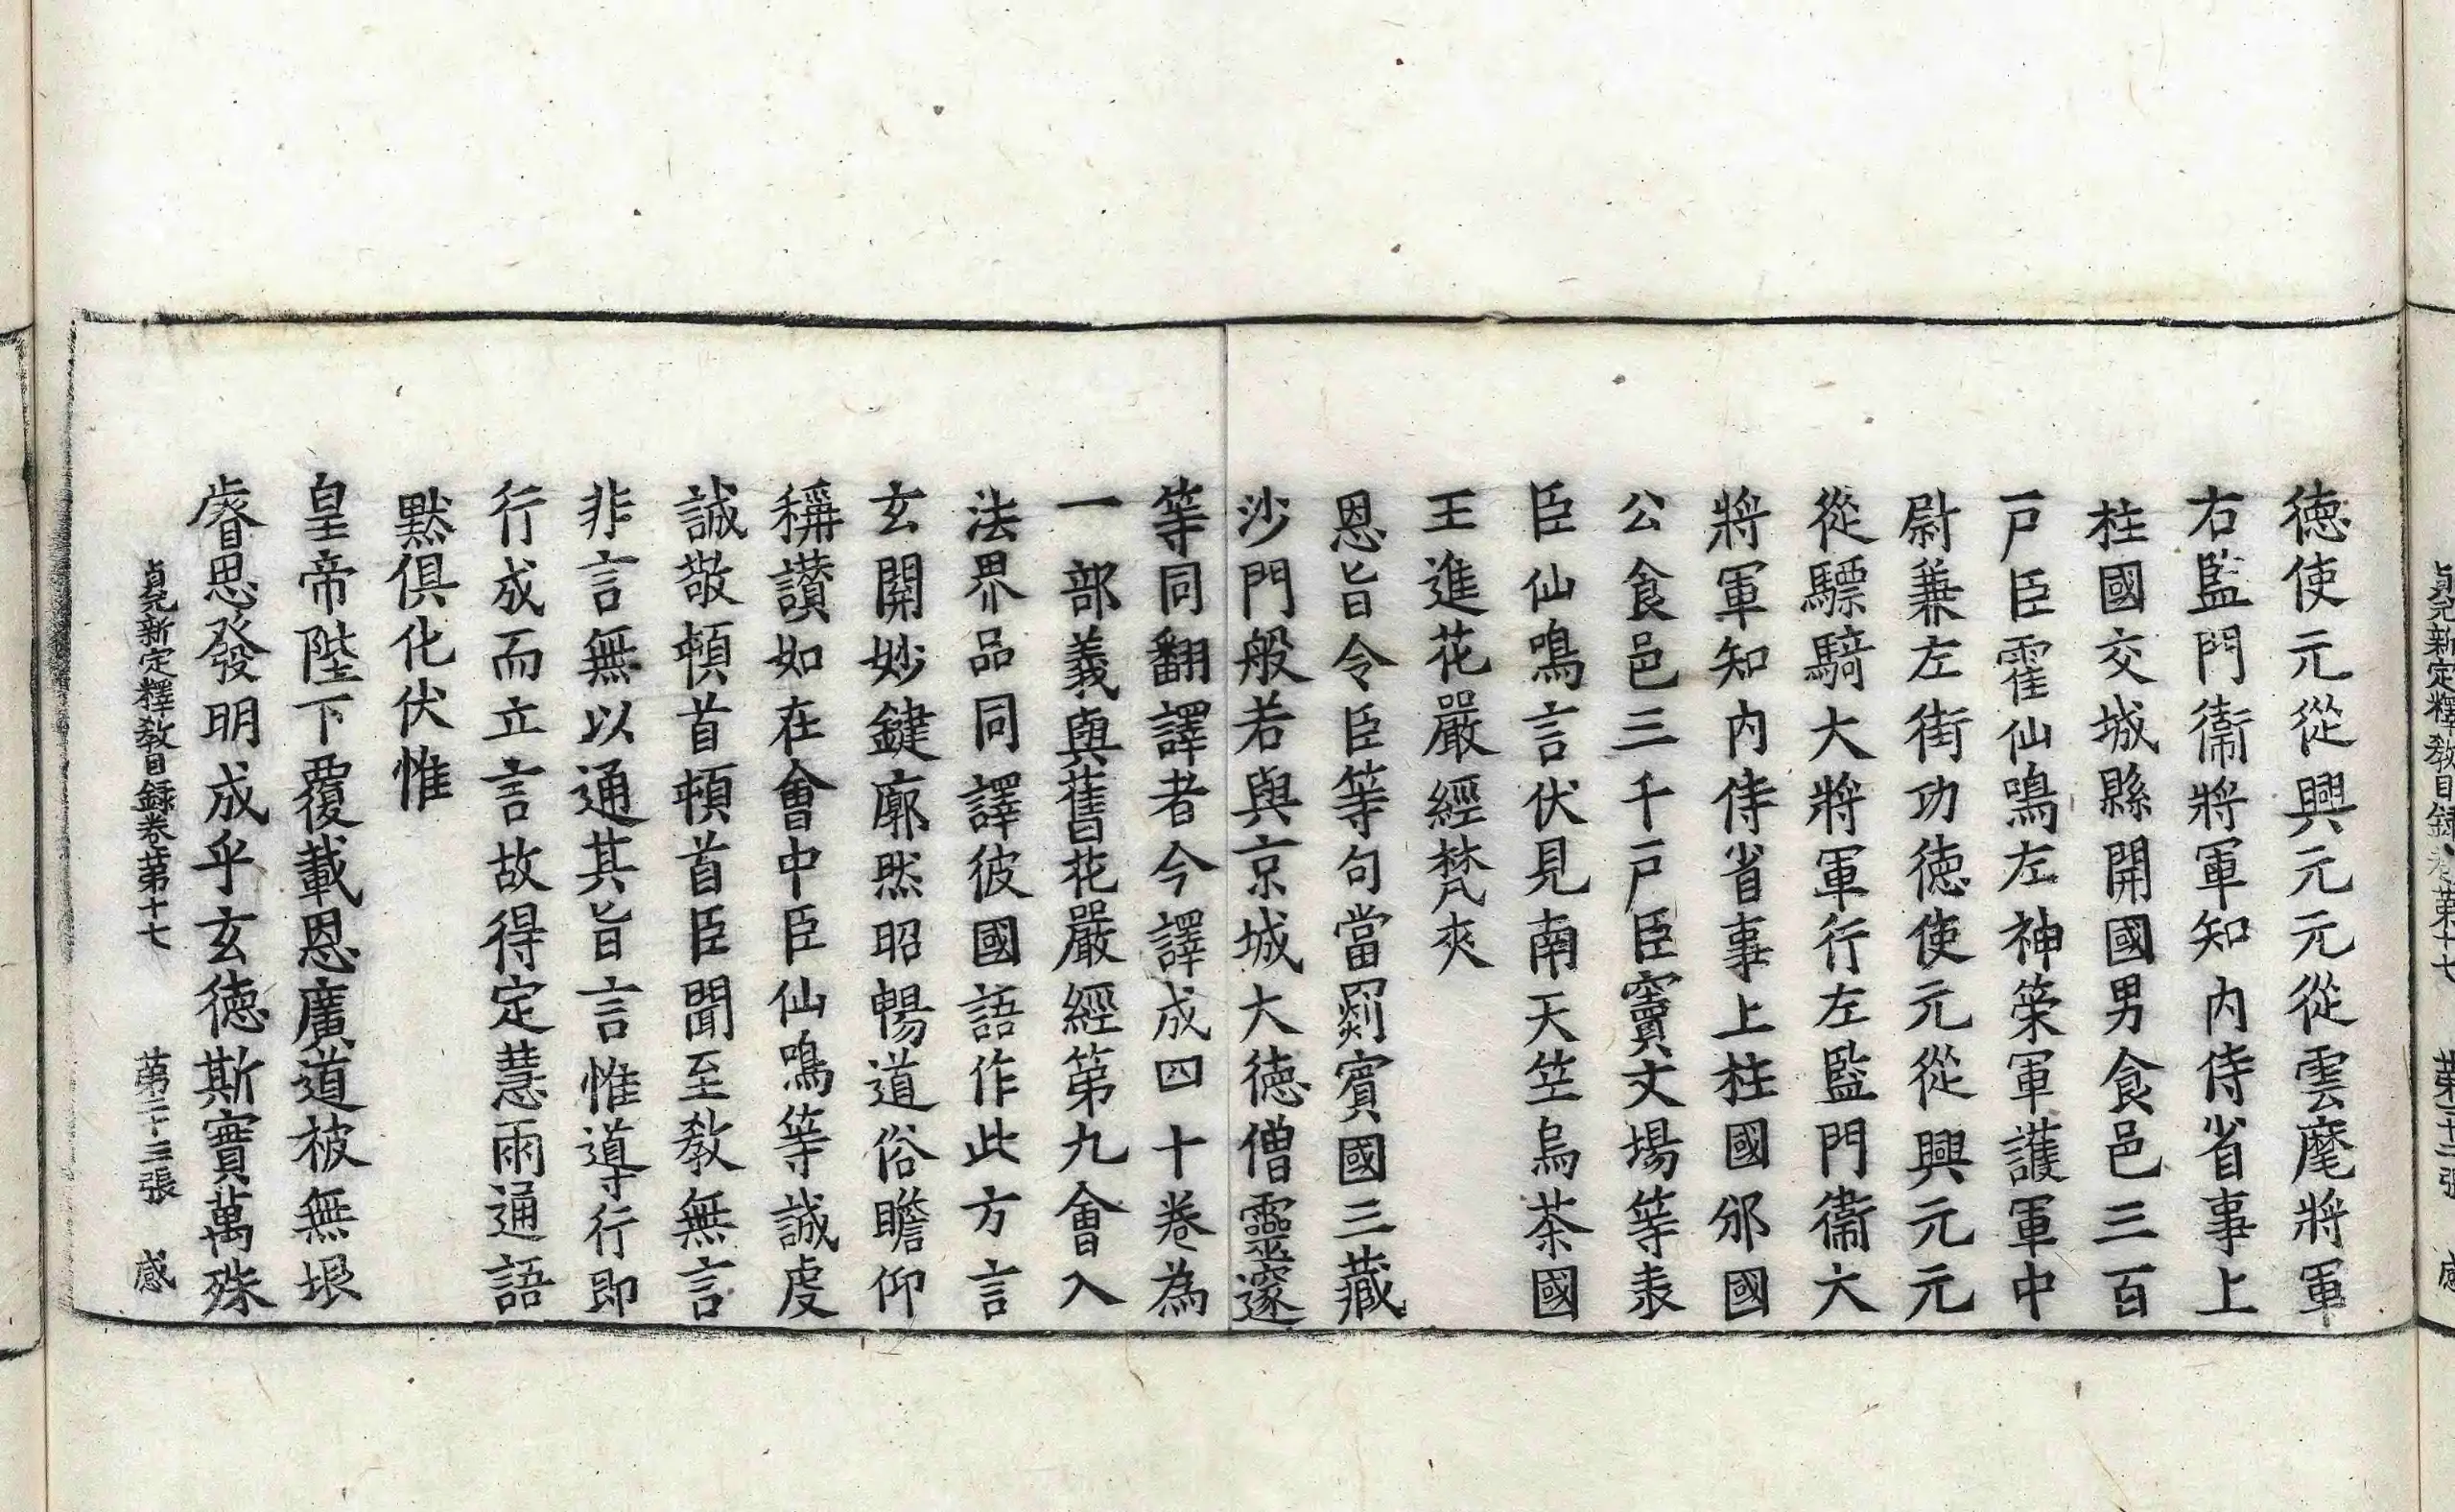 貞元新定釋教目録卷第十七　第二十二張　感
德使元從興元元從雲麾將軍
右監門衛將軍知內侍省事上
柱國交城縣開國男食邑三百
戶臣霍仙鳴左神策軍護軍中
尉兼左街功德使元從興元元
從驃騎大將軍行左監門衛大
將軍知內侍省事上柱國邠國
公食邑三千戶臣竇文場等表
臣仙鳴言伏見南天笁烏茶國
王進花嚴經梵夾
恩旨令臣等句當罽賓國三藏
沙門般若與京城大德僧靈邃
等同翻譯者今譯成四十卷為
一部義與舊花嚴經第九會入
法界品同譯彼國語作此方言
玄開妙鍵廓然昭暢道俗瞻仰
稱讚如在會中臣仙鳴等誠虔
誠敬頓首頓首臣聞至教無言
非言無以通其旨言惟導行即
行成而立言故得定慧雨通語
黙俱化伏惟
皇帝陛下覆載恩廣道被無垠
睿思發明成乎玄德斯實萬殊
貞元新定釋教目録卷第十七　第二十三張　感